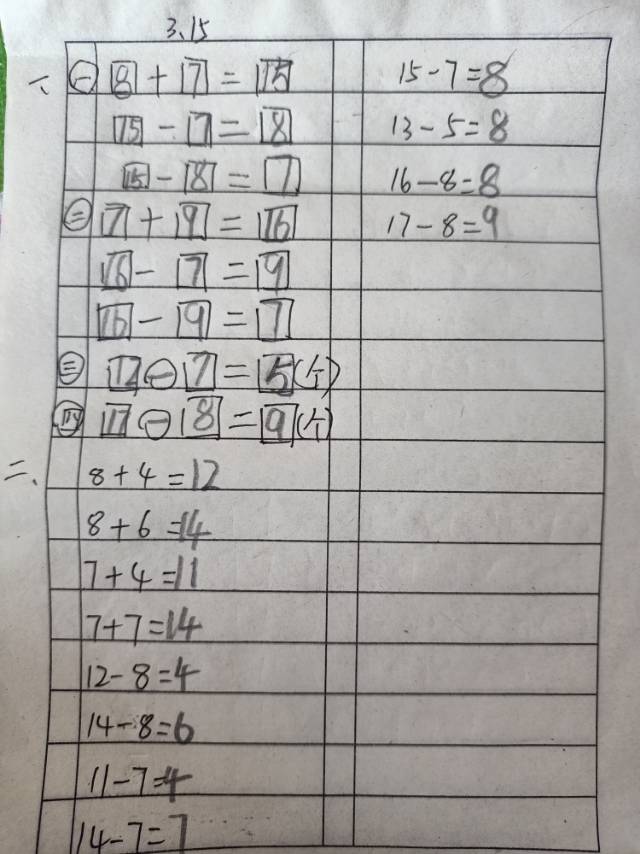 3.15
一、 ㊀ 8+7=15
15-7=8
15-8=7
㊁ 7+9=16
16-7=9
16-9=7
㊂ 12-7=5(个)
㊃ 17-8=9(个)
二、 8+4=12
8+6=14
7+4=11
7+7=14
12-8=4
14-8=6
11-7=4
14-7=7
15-7=8
13-5=8
16-8=8
17-8=9